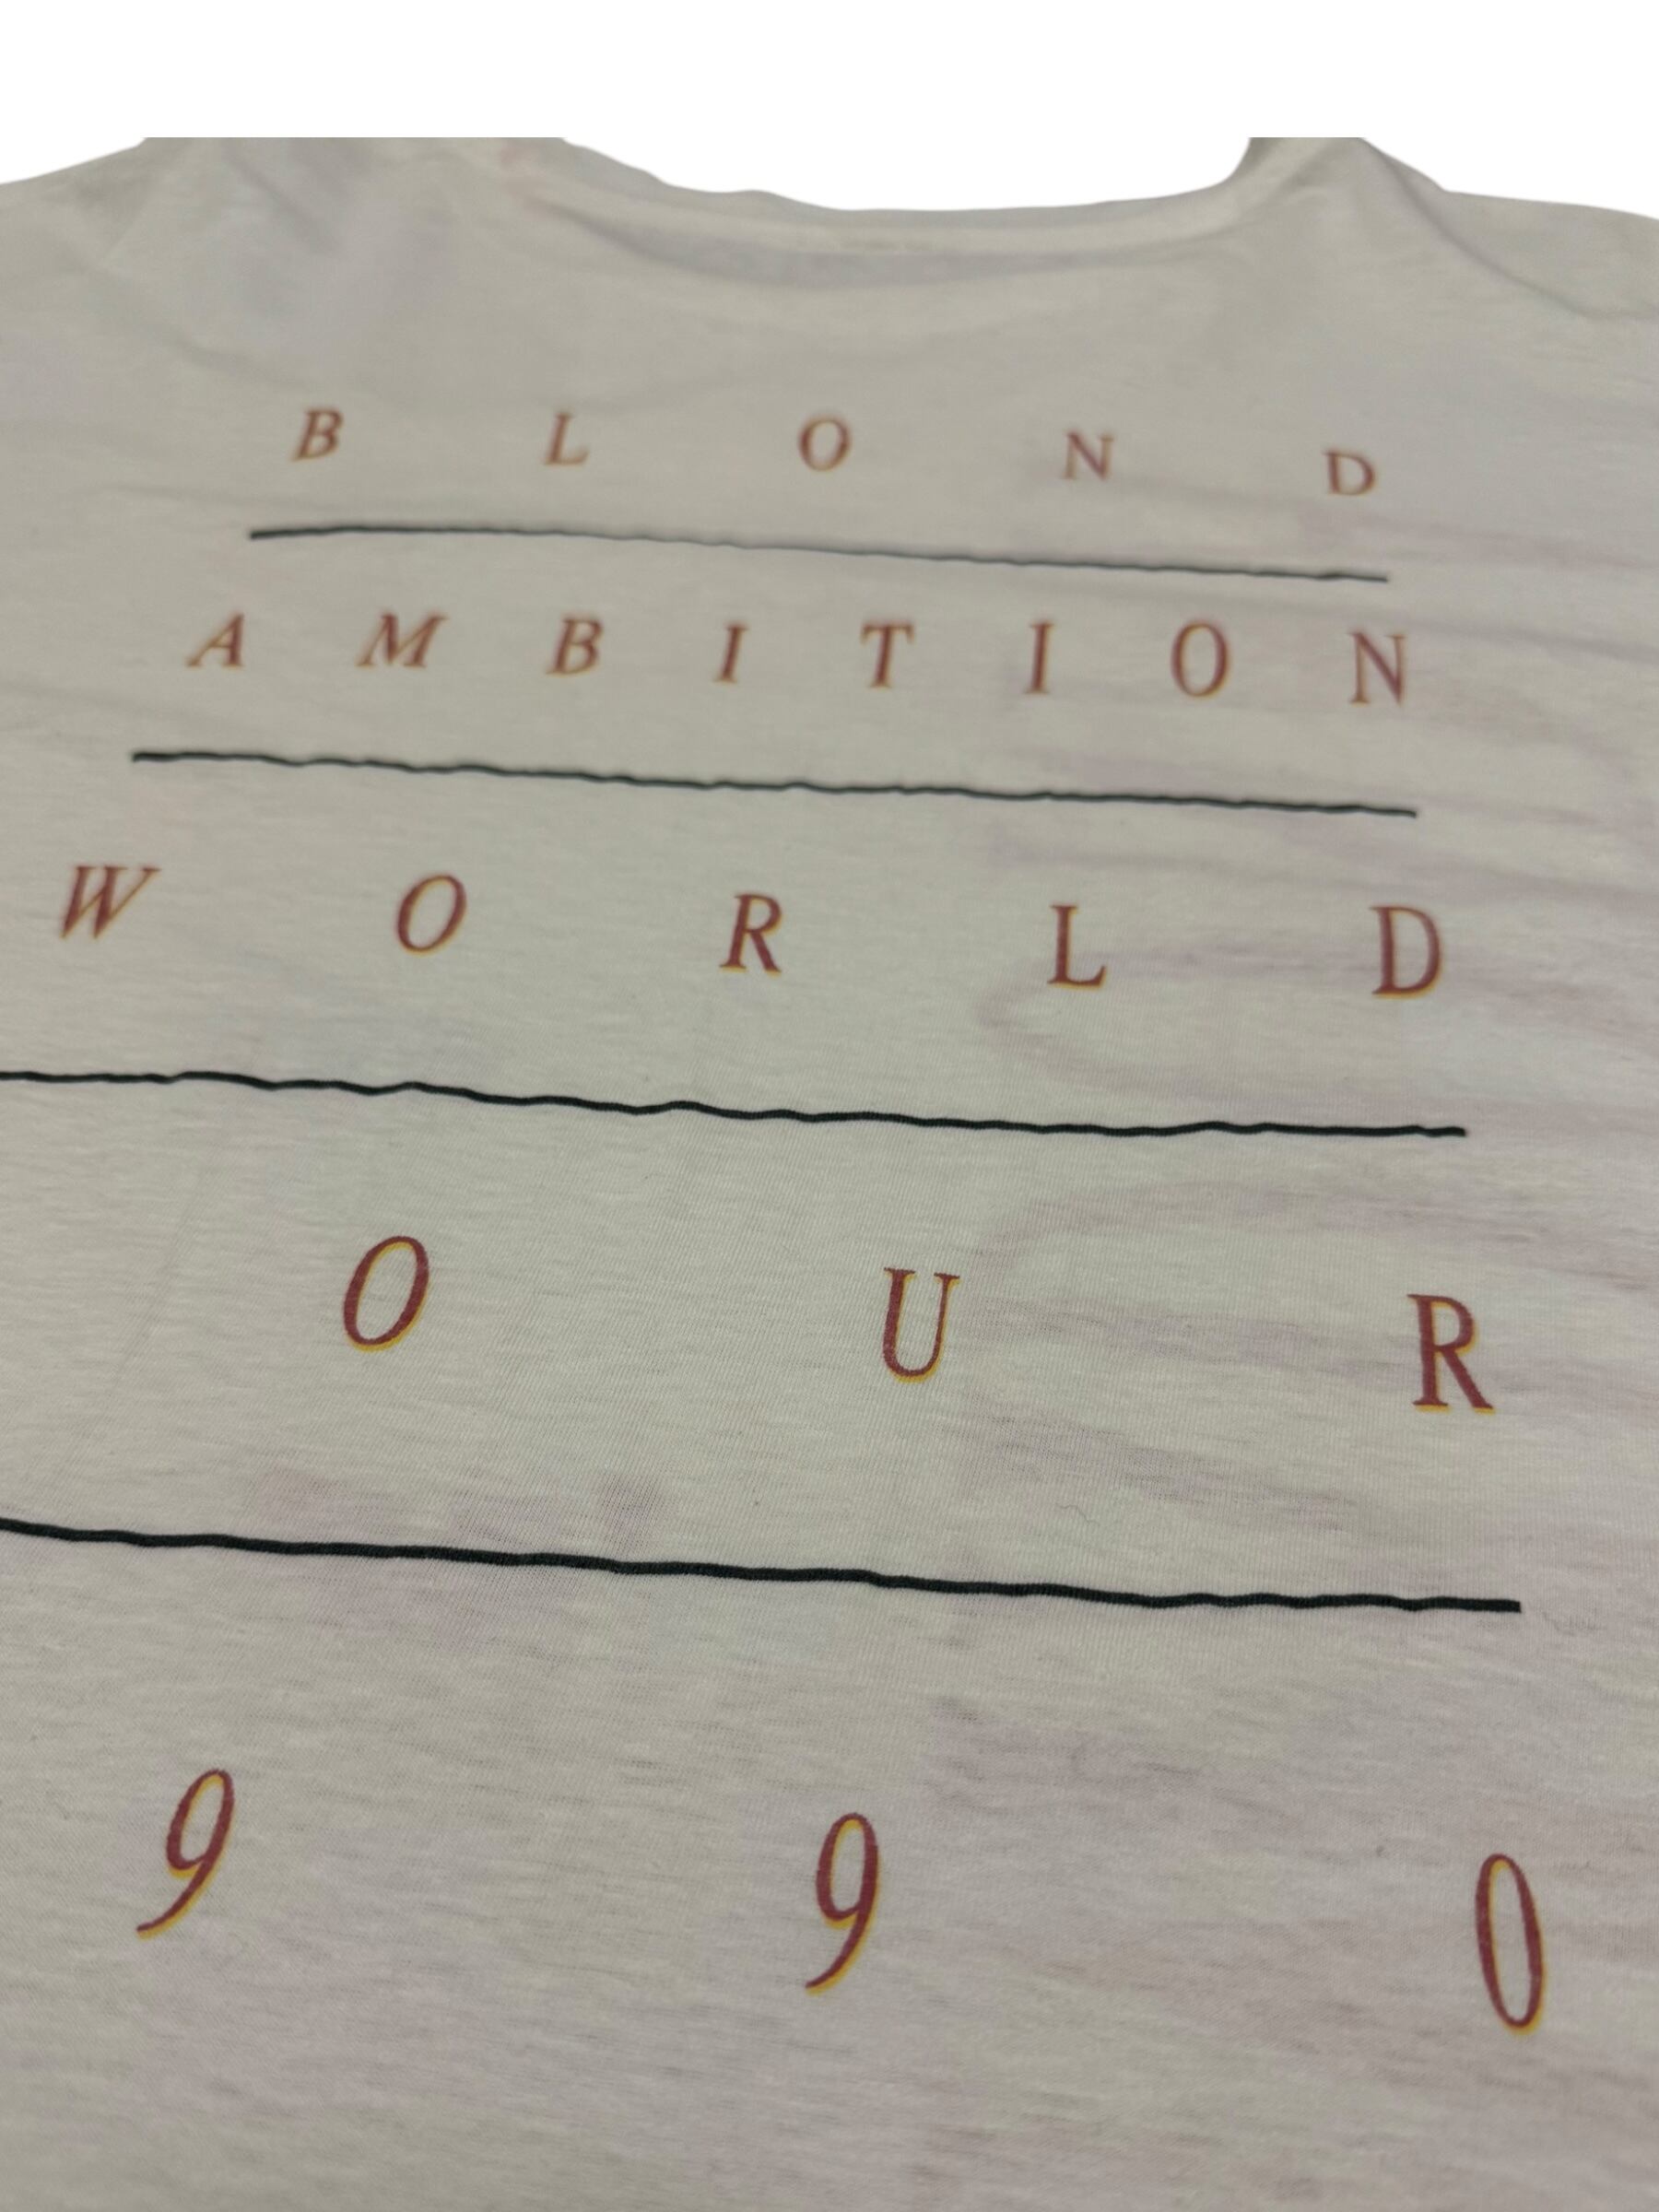 B L O N D
A M B I T I O N
W O R L D
O U R
9 9 0